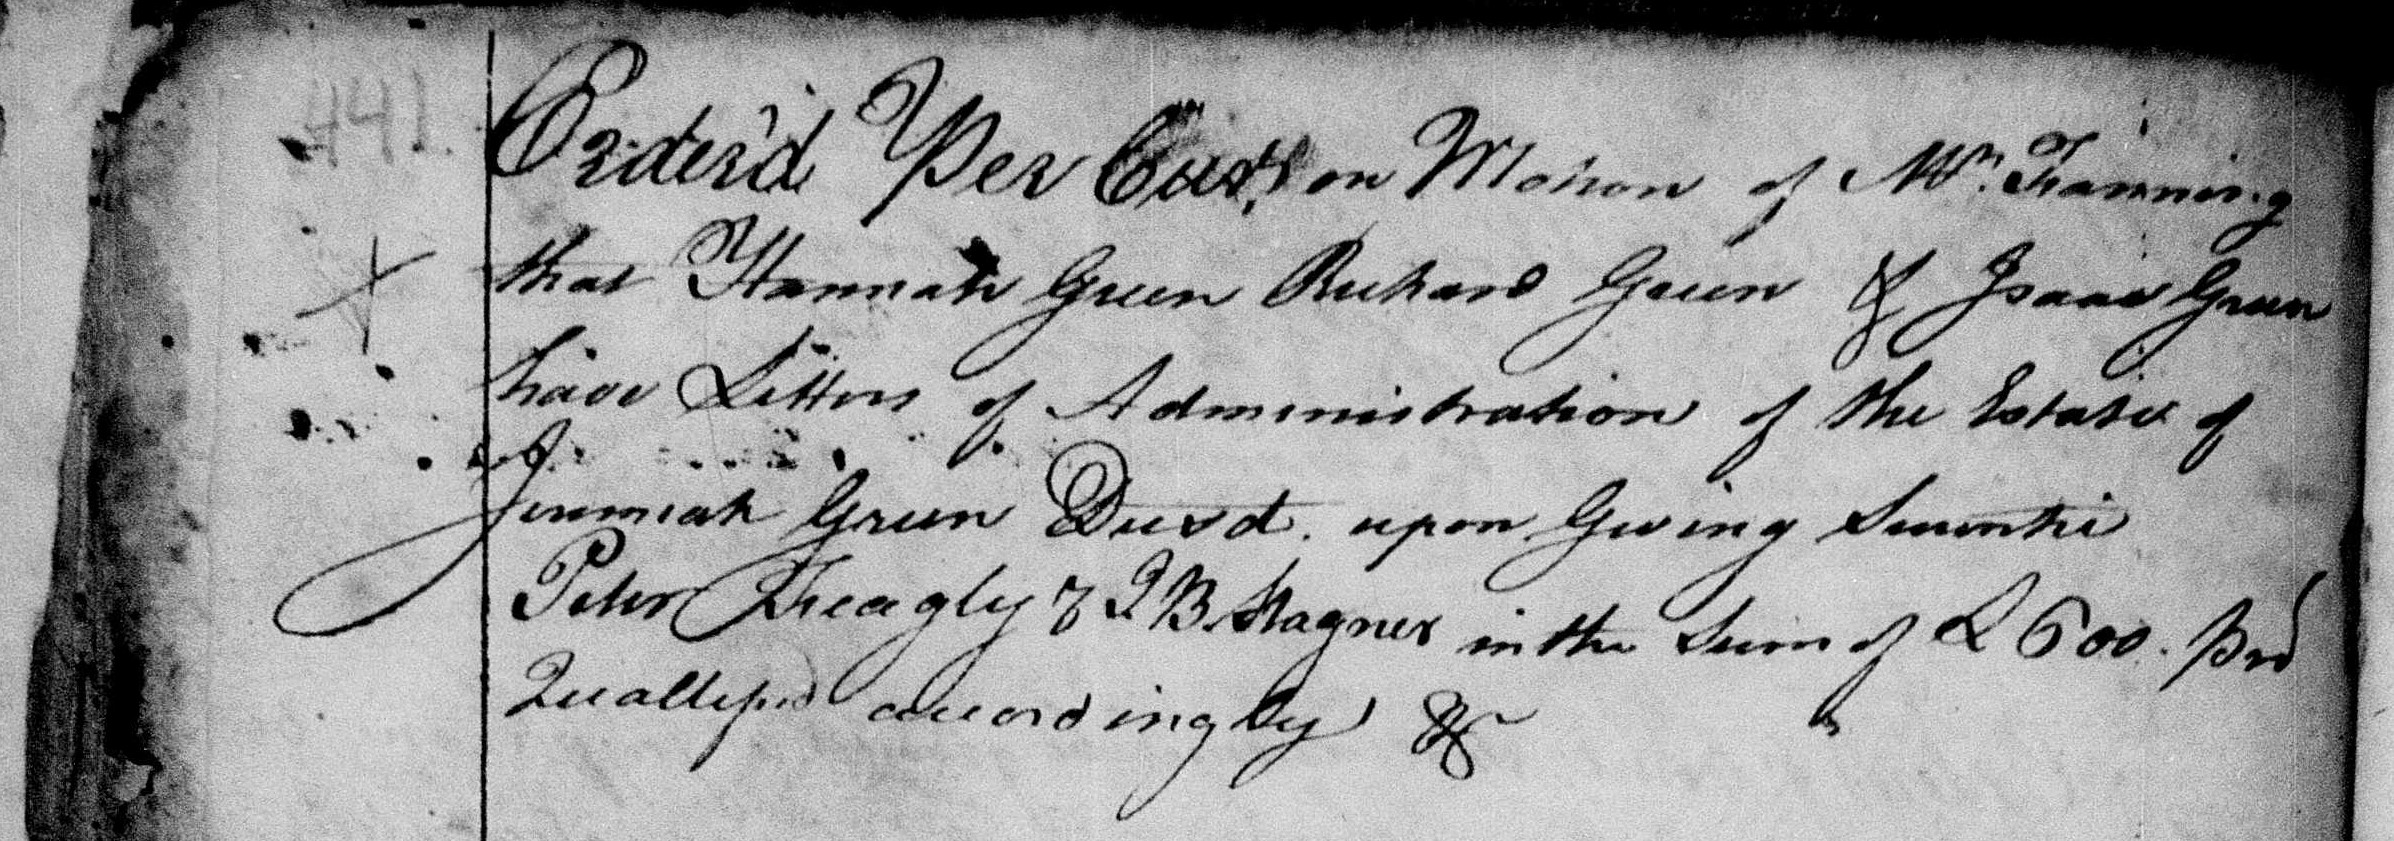 441
Order'd Per Curt. on Motion of Mr. Fanning
that Hannah Green Richard Green & Isaac Green
have Letters of Administration of the Estate of
Jeremiah Green Decsd. upon Giving
Peter & J B Stagner in the Sum of £ 600. Prod
accordingly &c